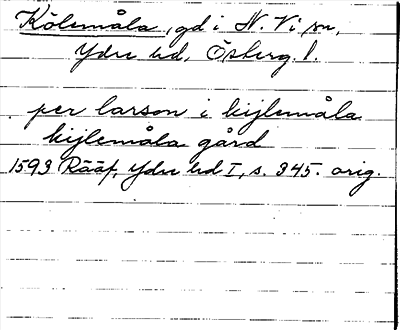 Kölemåla, gd i N. Vi sn,
Ydre hd, Österg. l.
per larson i kijlemåla
kijlemåla gård
1593 Rääf, Ydre hd I, s. 345. orig.